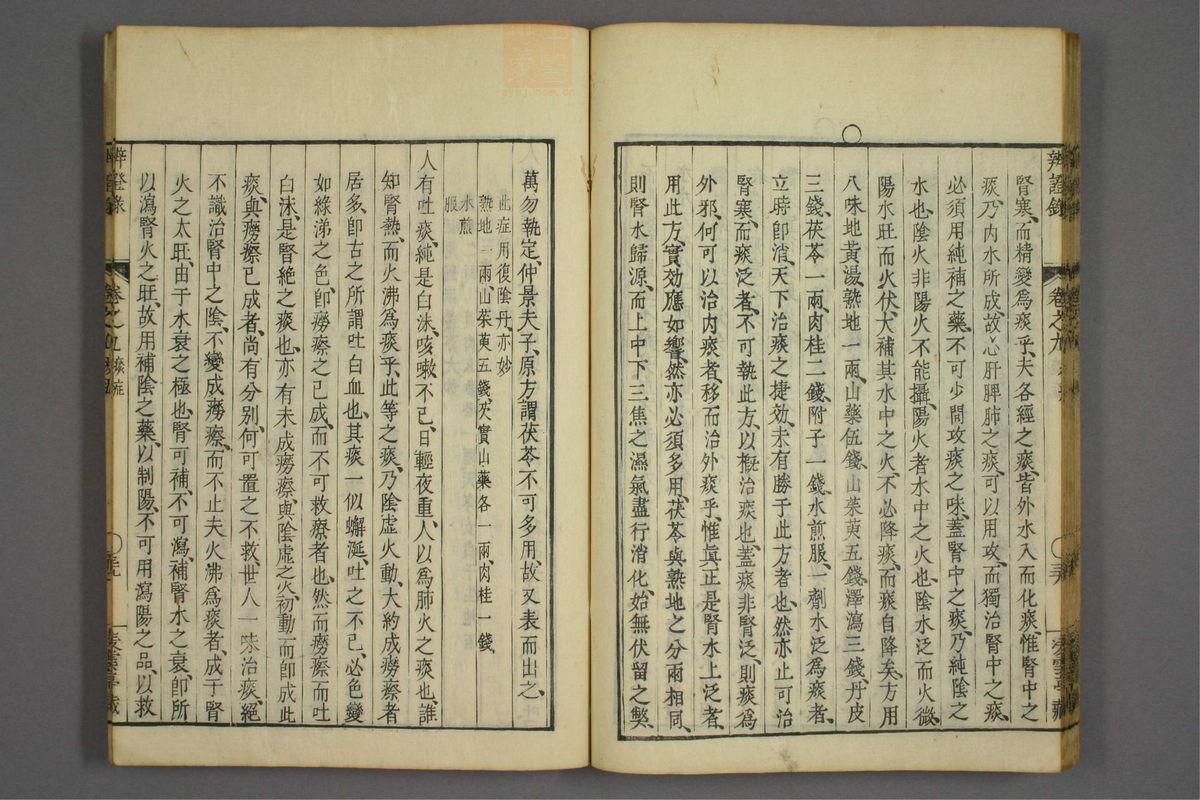 辨證錄 卷之九
腎寒、而精變爲痰乎、夫各經之痰、皆外水入而化痰、惟腎中之
痰、乃內水所成、故心肝脾肺之痰、可以用攻、而獨治腎中之痰、
必須用純補之藥、不可少間攻痰之味、蓋腎中之痰、乃純陰之
水也、陰火非陽火不能攝、陽火者水中之火也、陰水泛而火微、
陽水旺而火伏、大補其水中之火、不必降痰、而痰自降矣、方用
八味地黃湯、熟地一兩、山藥伍錢、山茱萸五錢、澤瀉三錢、丹皮
三錢、茯苓一兩、肉桂二錢、附子一錢、水煎服、一劑水泛爲痰者、
立時卽消、天下治痰之捷效、未有勝于此方者也、然亦止可治
腎寒、而痰泛者、不可執此方、以概治痰也、蓋痰非腎泛、則痰爲
外邪、何可以治內痰者、移而治外痰乎、惟眞正是腎水上泛者、
用此方、實効應如響、然亦必須多用、茯苓與熟地之分兩相同、
則腎水歸源、而上中下三焦之濕氣盡行消化、始無伏留之獘、
萬勿執定、仲景夫子、原方謂茯苓不可多用、故又表而出之、
此症用復陰丹、亦妙
熟地一兩、山茱萸五錢、芡實山藥各一兩、肉桂一錢、
水煎
服
人有吐痰、純是白沫、咳嗽不已、日輕夜重、人以爲肺火之痰也、誰
知腎熱、而火沸爲痰乎、此等之痰、乃陰虛火動、大約成癆瘵者
居多、卽古之所謂吐白血也、其痰一似蠏涎、吐之不已、必色變
如綠涕之色、卽癆瘵之已成、而不可救療者也、然而癆瘵而吐
白沫、是腎絶之痰也、亦有未成癆瘵、與陰虛之火、初動而卽成此
痰、與癆瘵已成者、尚有分別、何可置之不救、世人一味治痰、絶
不識治腎中之陰、不變成癆瘵、而不止夫火沸爲痰者、成于腎
火之太旺、由于水衰之極也、腎可補、不可瀉、補腎水之衰、卽所
以瀉腎火之旺、故用補陰之藥、以制陽、不可用瀉陽之品、以救
辨證錄 痰症